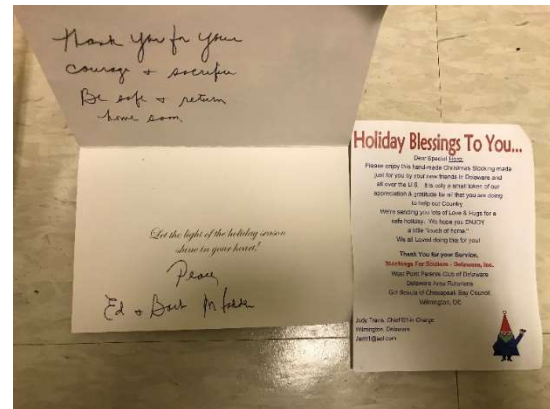 Thank you for your
courage + sacrifice
Be safe + return
home soon
Let the light of the holiday season
shine in your heart!
Peace
Ed +
Holiday Blessings To You...
Dear Special Hero:
Please enjoy this hand-made Christmas Stocking made
just for you by your new friends in Delaware and
all over the U.S. It is only a small token of our
appreciation & gratitude for all that you are doing
to help our Country.
We're sending you lots of Love & Hugs for a
safe holiday. We hope you ENJOY
a little "touch of home."
We all Loved doing this for you!
Thank You for your Service,
Stockings For Soldiers - Delaware, Inc.
West Point Parents Club of Delaware
Delaware Area
Girl Scouts of Chesapeake Bay Council
Wilmington, DE
Judy Chief Elf in Charge
Wilmington, Delaware